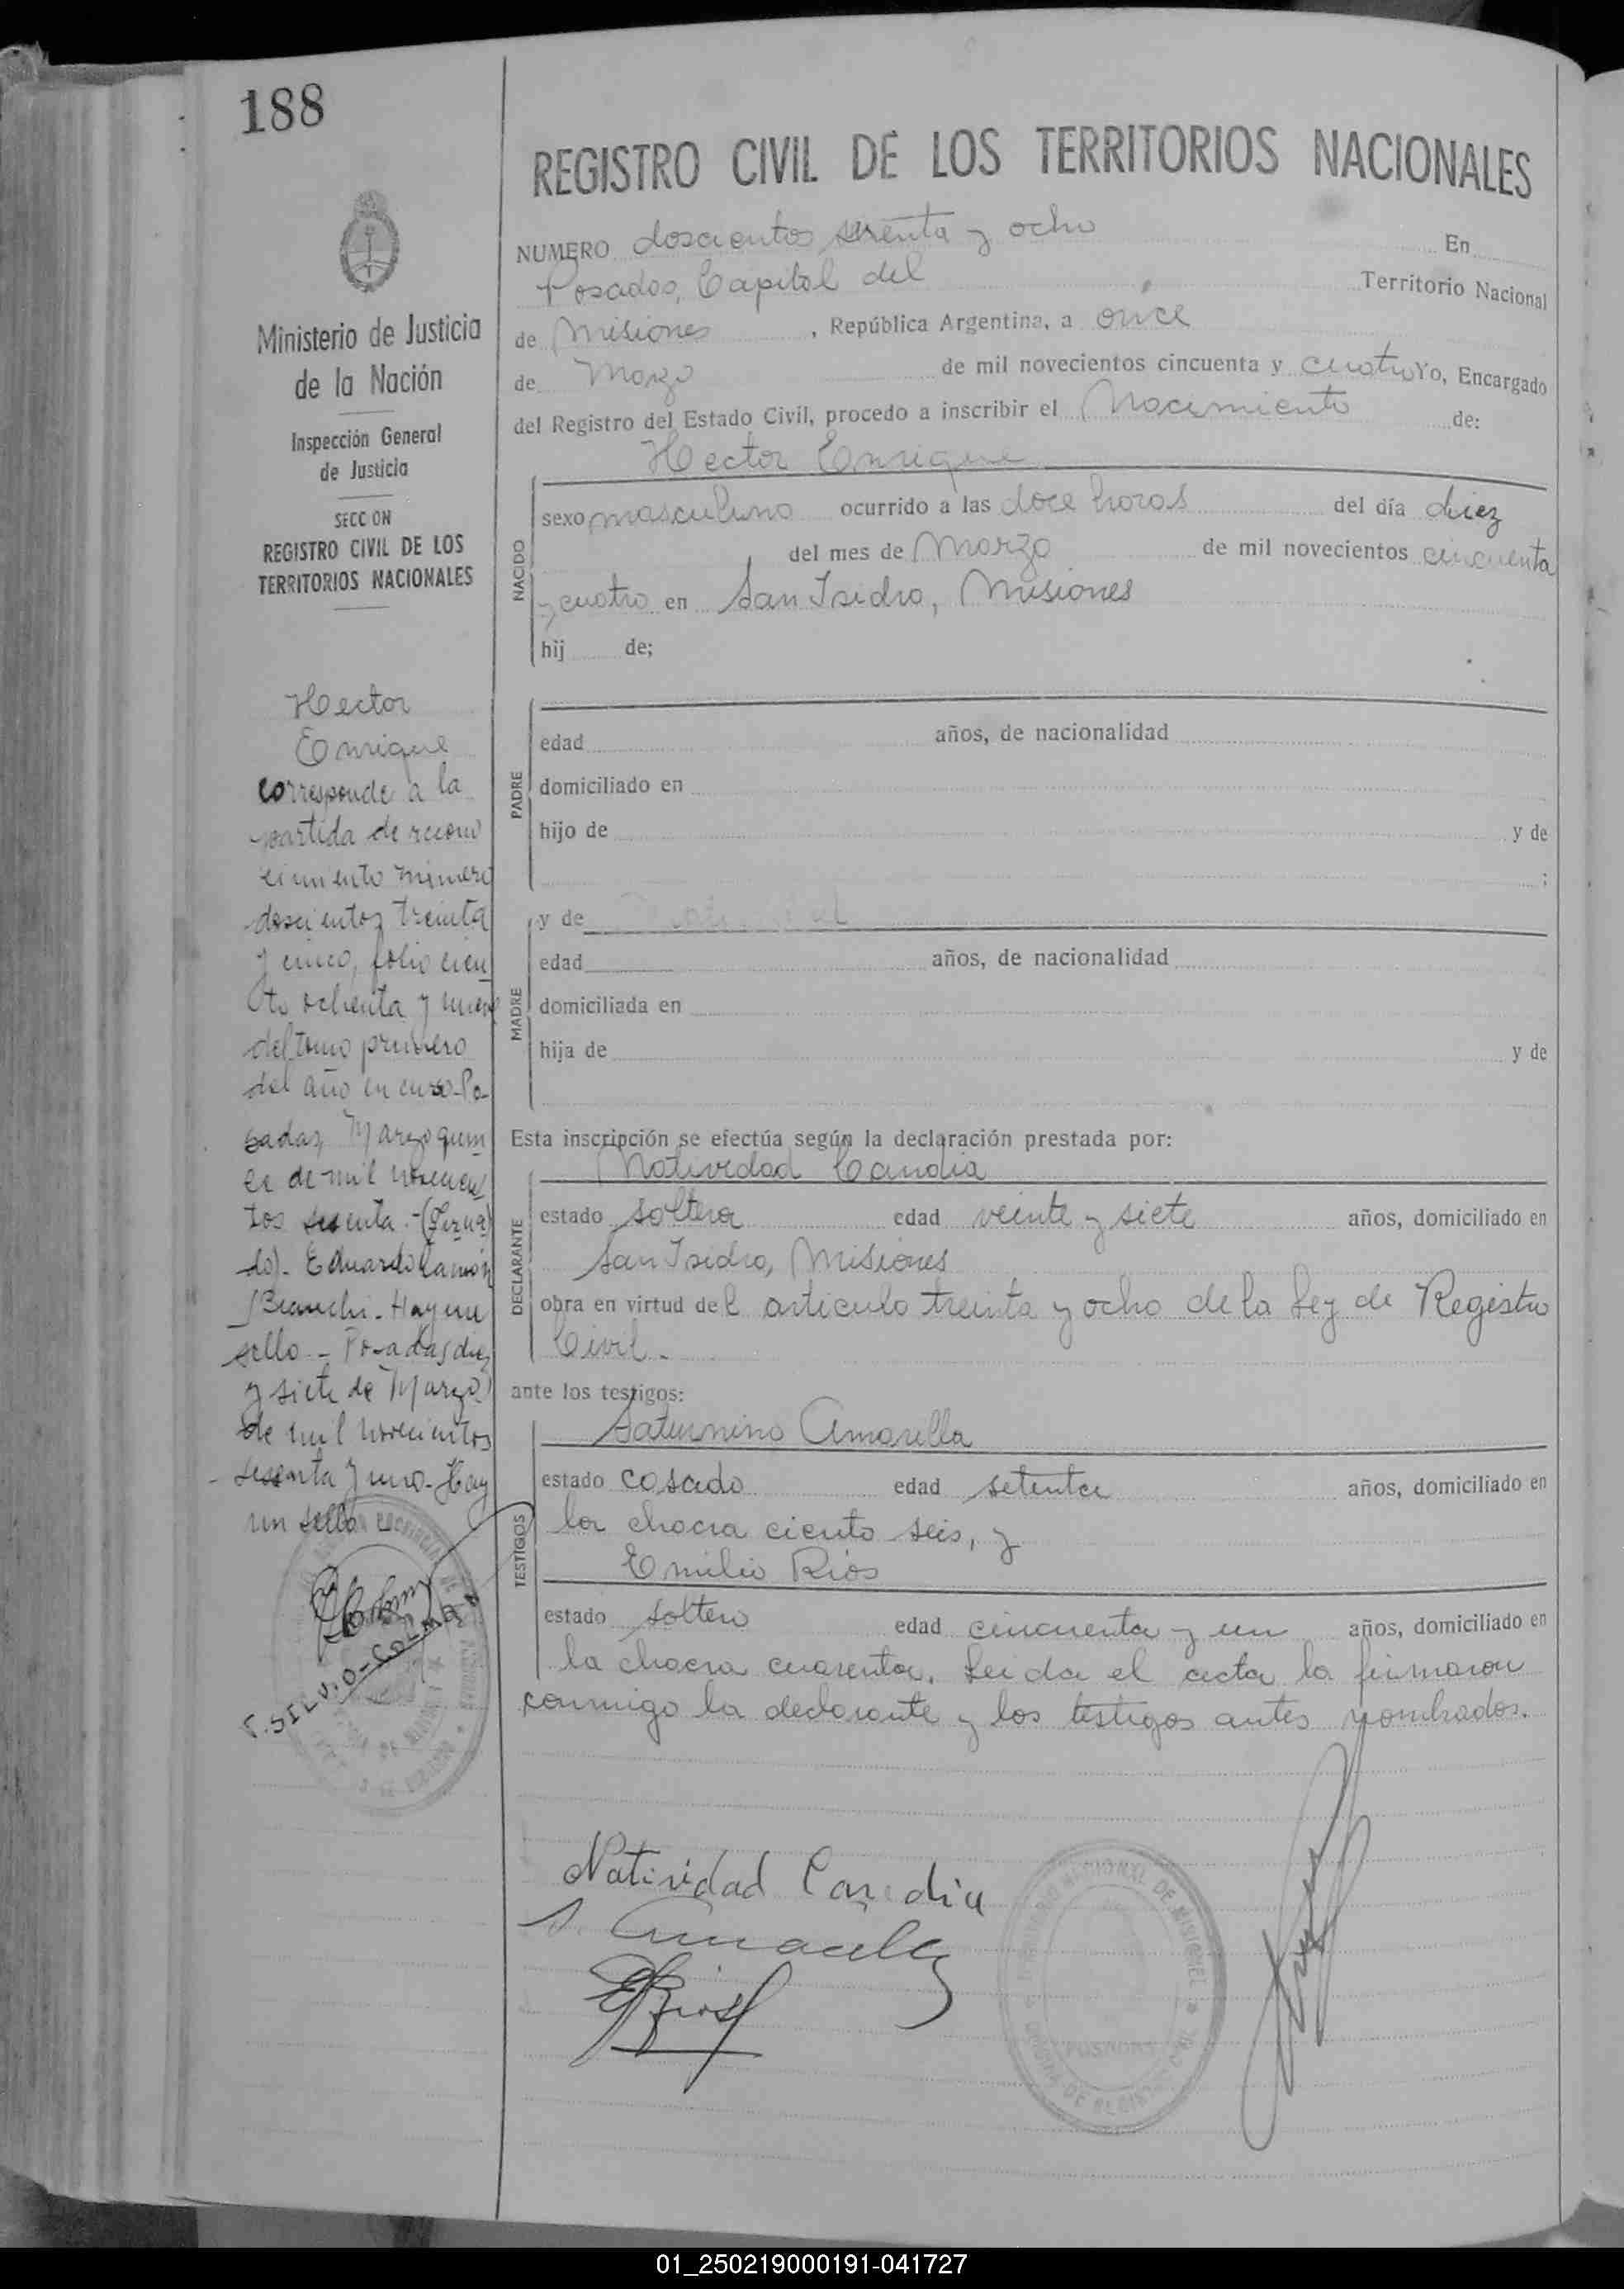 188
Ministerio de Justicia
de la Nación
Inspección General
de Justicia
SECCION
REGISTRO CIVIL DE LOS
TERRITORIOS NACIONALES
Hector
Enrique
corresponde a la
partida de recono
cimiento número
doscientos treinta
y cinco, folio cien
to ochenta y nueve
del tomo primero
del año en curso-Po-
sadas, Marzo quin
ce de mil novecien
tos sesenta.-(Firma
do)- Eduardo Ramón
Bianchi-Hay un
sello - Posadas diez
y siete de Marzo
de mil novecientos
sesenta y uno-Hay
un sello
REGISTRO CIVIL DE LOS TERRITORIOS NACIONALES
NUMERO doscientos y ocho En
Posadas, Capital del Territorio Nacional
de Misiones, República Argentina, a once
de Marzo de mil novecientos cincuenta y cuatro Yo, Encargado
del Registro del Estado Civil, procedo a inscribir el Nacimiento de:
Hector Enrique
NACIDO
sexo masculino ocurrido a las doce horas del día diez
del mes de Marzo de mil novecientos cincuenta
y cuatro en San Isidro, Misiones
hij de;
PADRE
edad años, de nacionalidad
domiciliado en
hijo de y de
;
MADRE
y de
edad años, de nacionalidad
domiciliada en
hija de y de
Esta inscripción se efectúa según la declaración prestada por:
Natividad Candia
DECLARANTE
estado soltera edad veinte y siete años, domiciliado en
San Isidro, Misiones
obra en virtud del articulo treinta y ocho de la Ley de Registro
Civil.-
ante los testigos:
Saturnino Amarilla
TESTIGOS
estado casado edad setenta años, domiciliado en
la chacra ciento seis, y
Emilio Rios
estado soltero edad cincuenta y un años, domiciliado en
la chacra cuarenta. Leida el acta la firmaron
conmigo la declarante y los testigos antes nombrados.
Natividad Candia
S. Amarilla
E Rios
TERRITORIO NACIONAL DE MISIONES
POSADAS
01_250219000191-041727